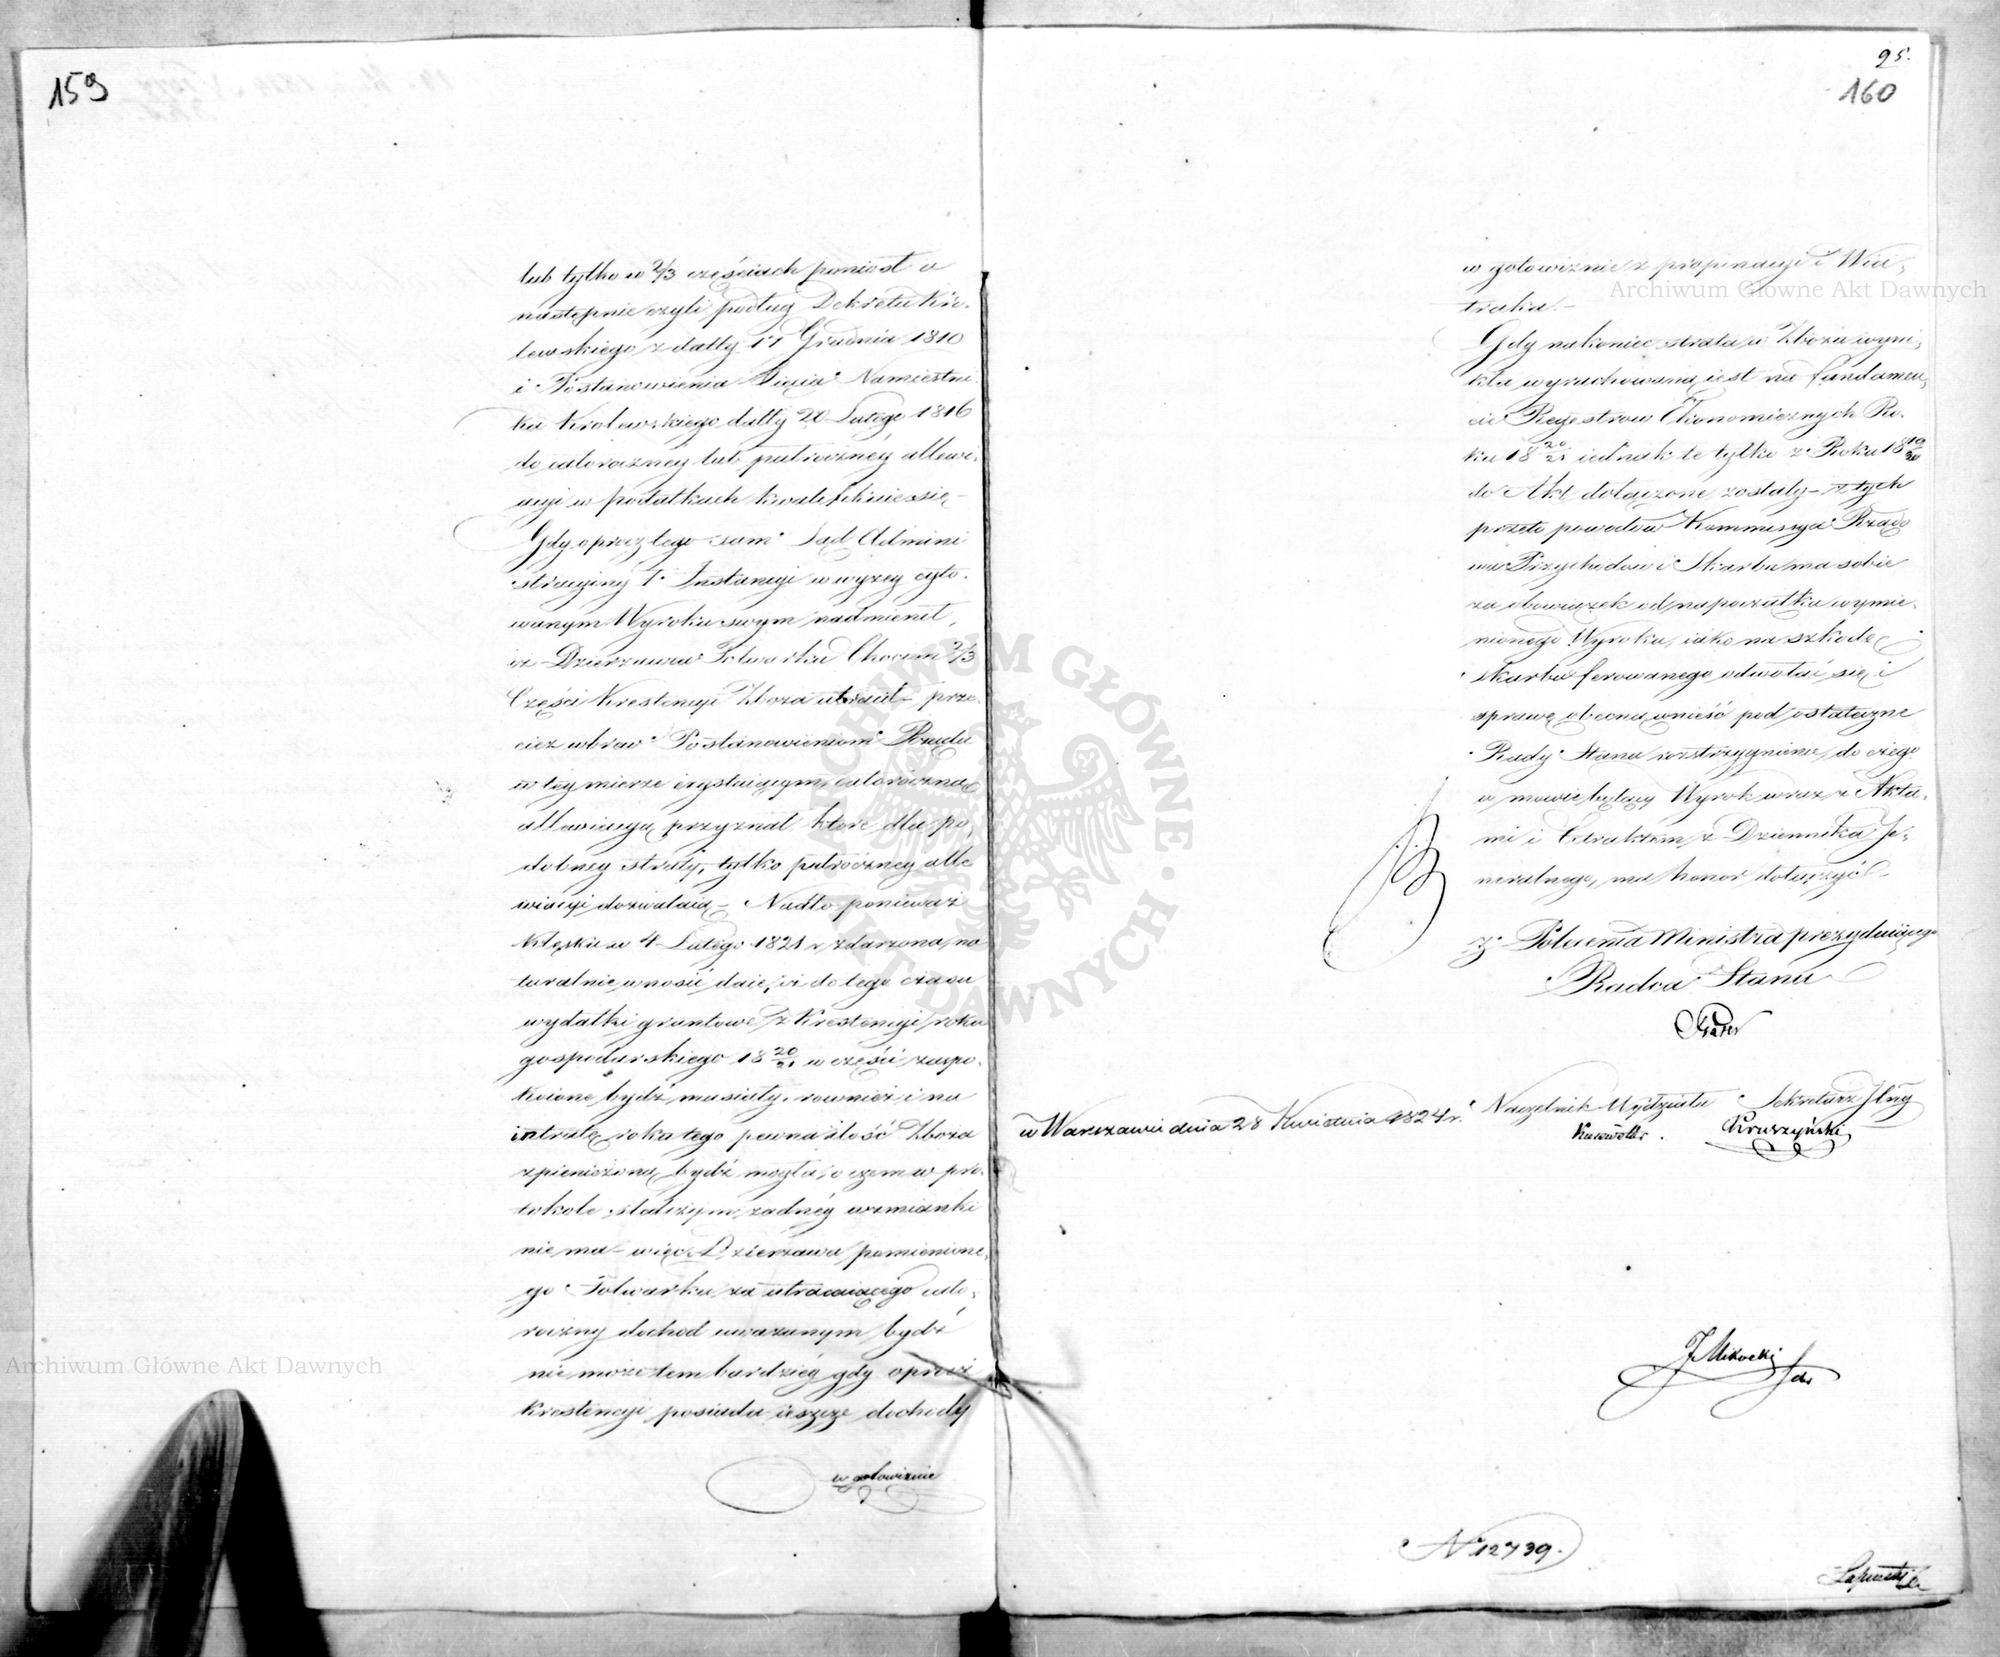 159
lub tylko w 2/3 częściach poniosł a
następnie czyli podług Dekretu Kró-
lewskiego z datty 11 Grudnia 1810
i Postanowienia Xięcia Namiestni
ka Krolewskiego datty 20 Lutego 1816
do całorocznej lub półrocznéy allewi-
acyi w podatkach kwalifikuie się –
Gdy oprócz tego sam Sąd Admini
stracyiny 1. Instancyi w wyzey cyto-
wanym Wyroku swym nadmienił,
iż Dzierzawca Folwarku Chocim 2/3
Części Krestencyi Zboza utracił – prze-
ciez wbrew Postanowieniom Rządu
w tey mierze exystuiącym, całoroczną
allewiacyą przyznał które dla po-
dobney straty, tylko półroczney alle
wiacyi dozwalaią – Nadto ponieważ
klęska w 4 Lutego 1821 r. zdarzona, na
turalnie wnosić daie, iż do tego czasu
wydatki gruntowe z Krestencyi roku
gospodarskiego 18 20/21 w części zaspo-
koione bydź musiały, rownież i na
intratę roku tego pewna ilość Zboza
spieniężoną bydź mogła, o czem w pro-
tokole śledczym zadnéy wzmianki
nie ma – więc Dzierzawca pomienione-
go Folwarku za utracaiącego cało-
roczny dochod uwazanym bydź
nie moze tem bardziéy gdy oprocz
krestencyi posiada ieszcze dochody
w gotowiznie
95.
160
w gotowiznie z propinacyi i Wia-
traka. –
Gdy nakoniec strata w Zbożu wyni-
kła wyrachowaną iest na fundamen-
cie Regestrow Ekonomicznych Ro-
ku 18 20/21 iednak te tylko z Roku 18 19/20
do Akt dołączone zostały – z tych
przeto powodów Kommissya Rządo
wa Przychodow i Skarbu ma sobie
za obowiązek od na początku wymie-
nionego Wyroku, iako na szkodę
skarbu ferowanego odwołać się i
sprawę obecną wnieść pod ostateczne
Rady Stanu rozstrzygnienie, do czego
w mowie będący Wyrok wraz z Akta-
mi i Extraktem z Dziennika Je-
neralnego, ma honor dołączyć –
z Polecenia Ministra prezyduiącego
Radca Stanu
w Warszawie dnia 28 Kwietnia 1824 r.
Naczelnik Wydziału Sekretarz Jlny
Kruszyński
N 12739.
Archiwum Główne Akt Dawnych
Archiwum Główne Akt Dawnych
ARCHIWUM GŁÓWNE · AKT DAWNYCH ·